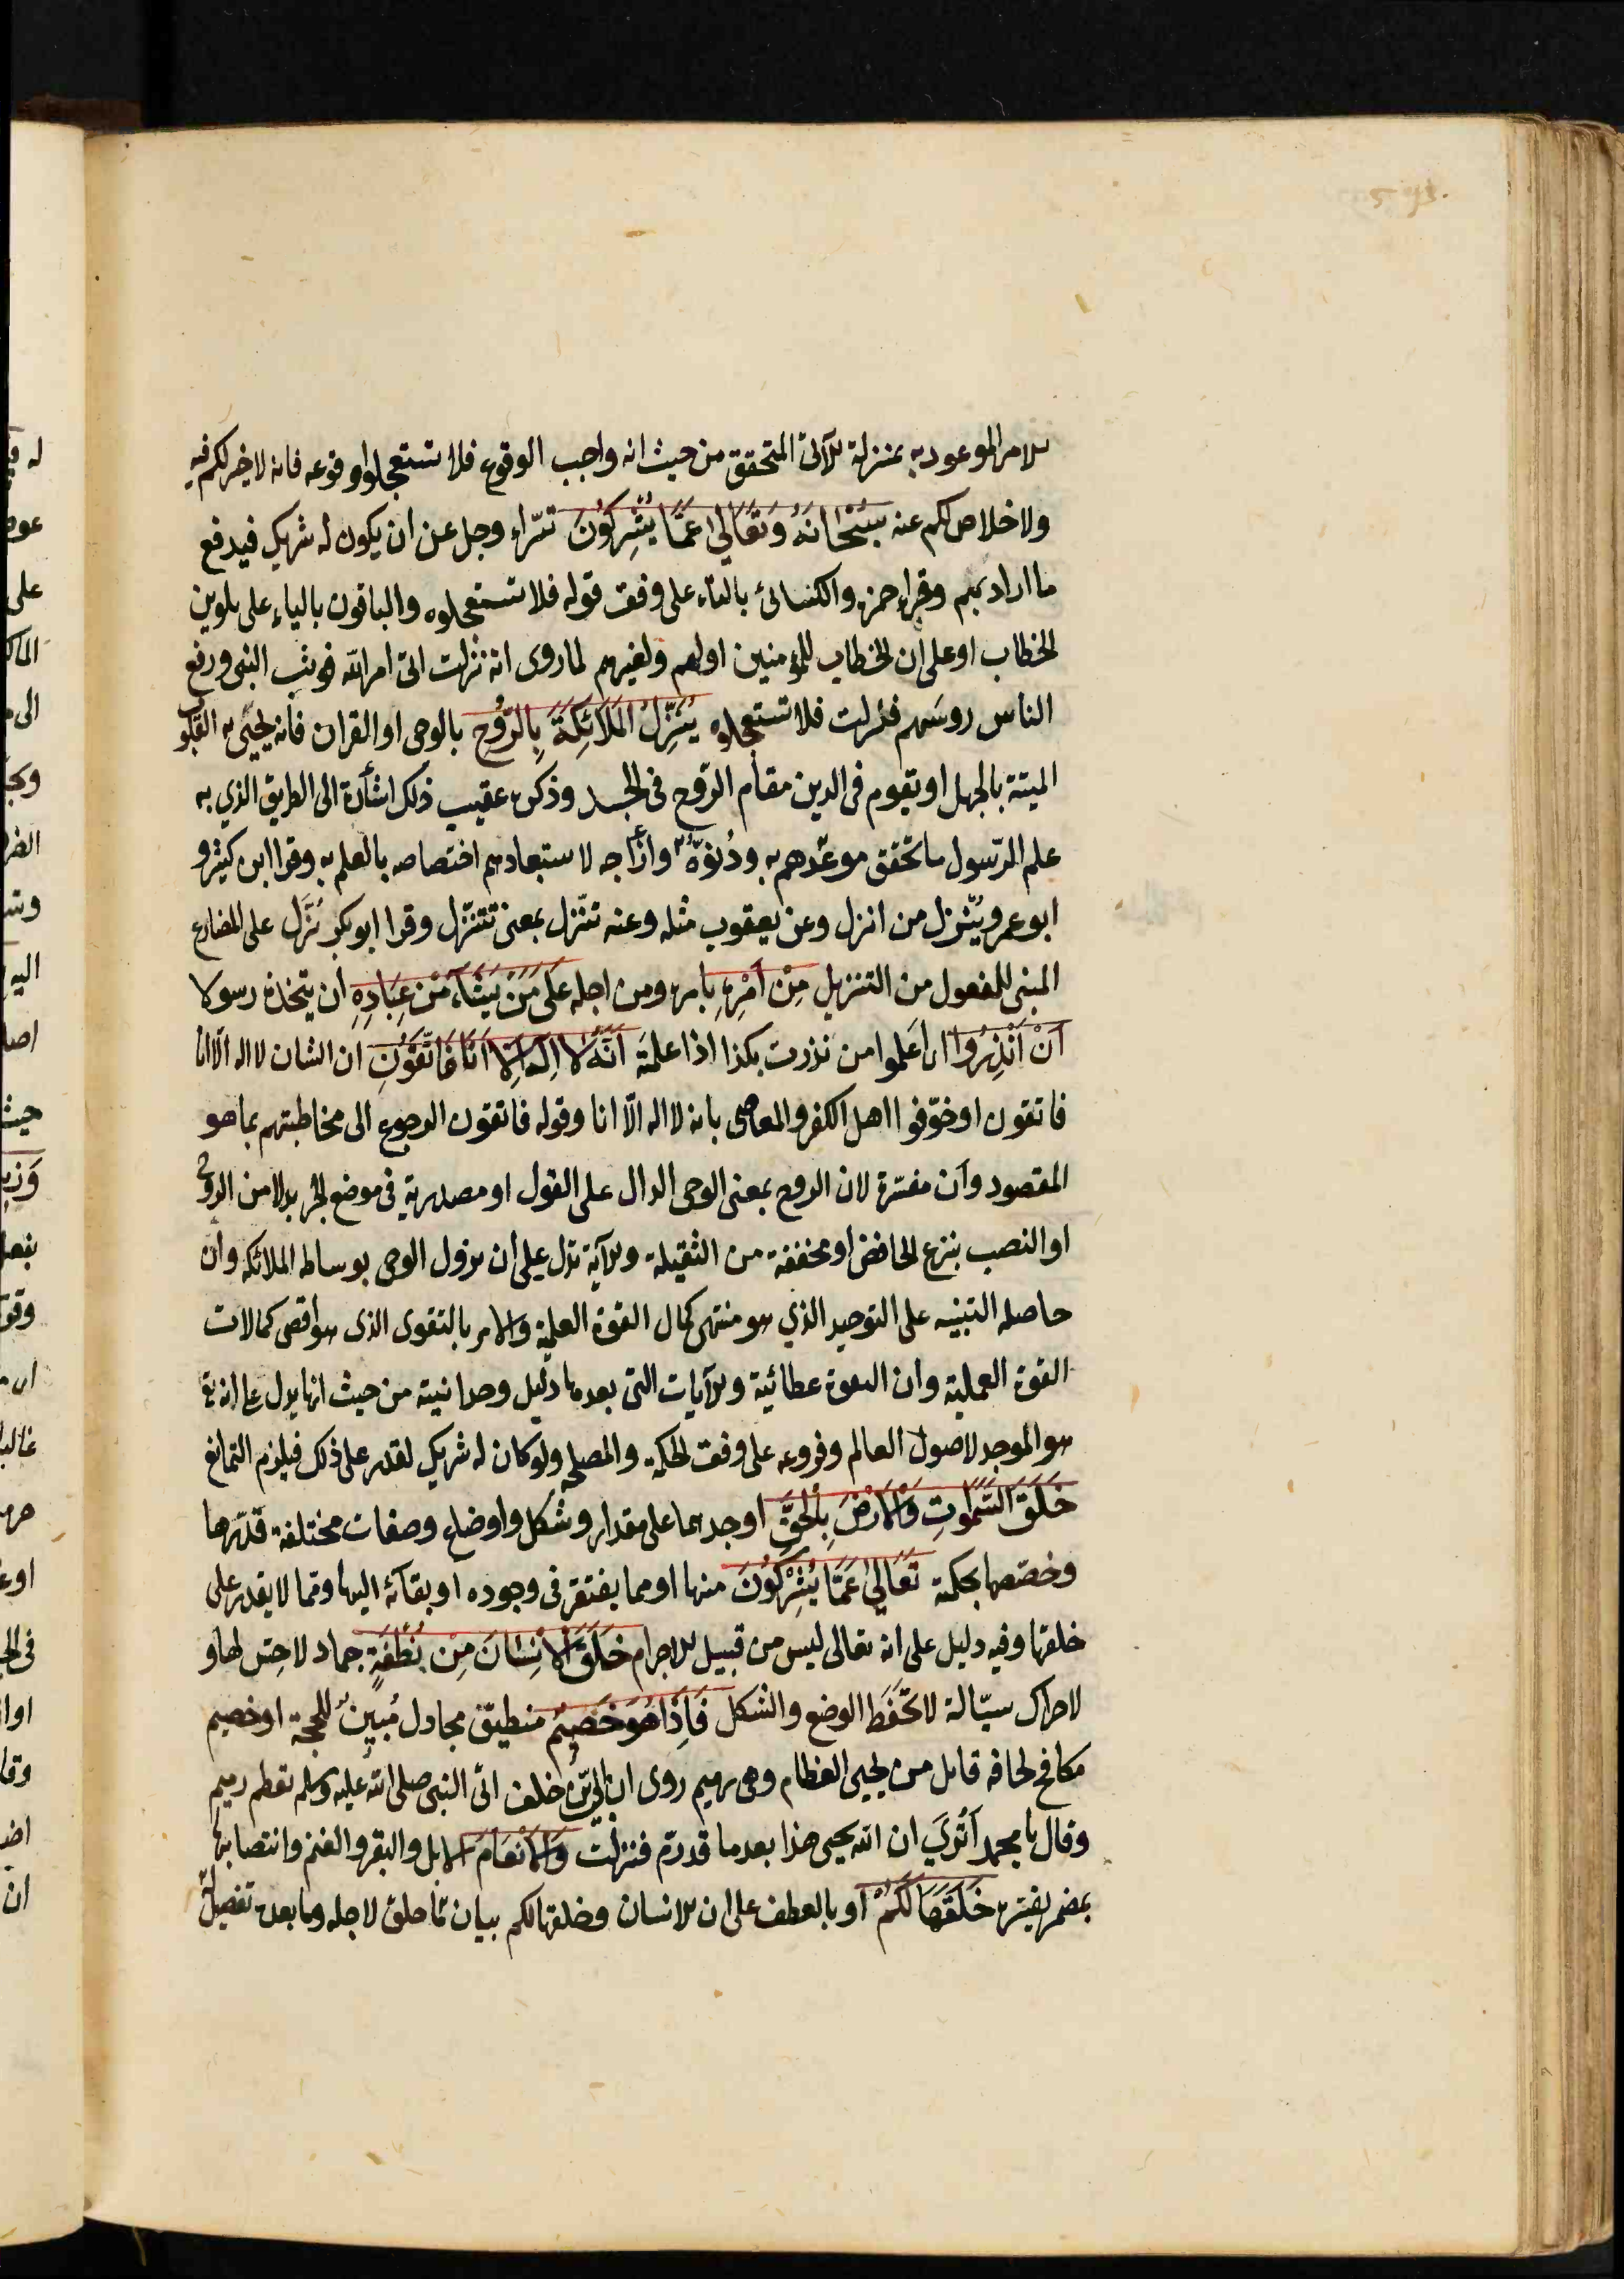 الامر الموعود به بمنزلة الآتى المتحقق من حيث انه واجب الوقوع فلا تستعجلوا وقوعه فانه لا خير لكم فيه
ولا خلاص لكم عنه سُبْحَانَهُ وَتَعَالَى عَمَّا يُشْرِكُونَ تبرّاء وجل عن ان يكون له شريك فيدفع
ما اراد بهم وقراء حمزه والكسائى بالتاء على وفق قوله فلا تستعجلوه والباقون بالياء على تلوين
الخطاب او على ان الخطاب للمؤمنين او لهم ولغيرهم لما روى انه نزلت اتى امر الله فوثب النبى ورفع
الناس روسهم فنزلت فلا تستعجلوه يُنَزِّلُ الْمَلَائِكَةَ بِالرُّوحِ بالوحى او القران فانه يحيى به القلوب
الميتة بالجهل او يقوم فى الدين مقام الروح فى الجسد وذكره عقيب ذلك اشارة الى الطريق الذي به
علم الرّسول ما تحقق موعدهم به ودنوّه وازاحه لاستبعادهم اختصاصه بالعلم به وقرا ابن كثير و
ابو عمرو يُنْزِل من انزل وعن يعقوب مثله وعنه تنزّل بمعنى تتنزّل وقرا ابو بكر تُنَزَّل على المضارع
المبنى للمفعول من التنزيل مِنْ اَمْرِهِ بامره ومن اجله عَلَى مَنْ يَشَاءُ مِنْ عِبَادِهِ ان يتخذه رسولا
اَنْ اَنْذِرُوا اى اعلموا من نذرت بكذا اذا علمته اَنَّهُ لَا اِلَهَ اِلَّا اَنَا فَاتَّقُونِ ان الشان لا اله الّا انا
فاتقون او خوّفوا اهل الكفر والمعاصى بانه لا اله الّا انا وقوله فاتقون الرجوع الى مخاطبتهم بما هو
المقصود وان مفسّرة لان الروح بمعنى الوحى الدال على القول او مصدرية فى موضع الجرّ بدلا من الروح
او النصب بنزع الخافض او مخففة من الثقيلة والآية تدل على ان نزول الوحى بوساطه الملائكه وان
حاصله التنبيه على التوحيد الذي هو منتهى كمال القوة العلمية والامر بالتقوى الذى هو اقصى كمالات
القوة العملية وان النبوة عطائية والآيات التى بعدها دليل وحدانيته من حيث انها يدل على انه تع
هو الموجد لاصول العالم وفروعه على وفق الحكمة والمصلحه ولو كان له شريك لقدر على ذلك فيلزم التمانع
خَلَقَ السَّمٰوَاتِ وَالْاَرْضَ بِالْحَقِّ اوجدهما على مقدار وشكل واوضاع وصفات مختلفة قدّرها
وخصّصها بحكمته تَعَالَى عَمَّا يُشْرِكُونَ منها او مما يفتقر فى وجوده او بقائه اليها وممّا لا يقدر على
خلقها وفيه دليل على انه تعالى ليس من قبيل الاجرام خَلَقَ الْاِنْسَانَ مِنْ نُطْفَةٍ جماد لا حِسّ لها و
لا حراك سيّالة لا تحفظ الوضع والشكل فَاِذَا هُوَ خَصِيمٌ منطيق مجادل مُبِينٌ للحجة او خصيم
مكافح لخالقه قايل من يحيى العظام وهى رميم روى ان ابىّ بن خلف اتى النبى صلى الله عليه وسلم بعظم رميم
وقال يا محمد اَتُرىَ ان الله يحيى هذا بعدما قد رمّ فنزلت وَالْاَنْعَامَ الابل والبقر والغنم وانتصابها
بمضمر يفسّره خَلَقَهَا لَكُمْ او بالعطف على الانسان وخلقها لكم بيان ما خلق لاجله وما بعده تفصيل له